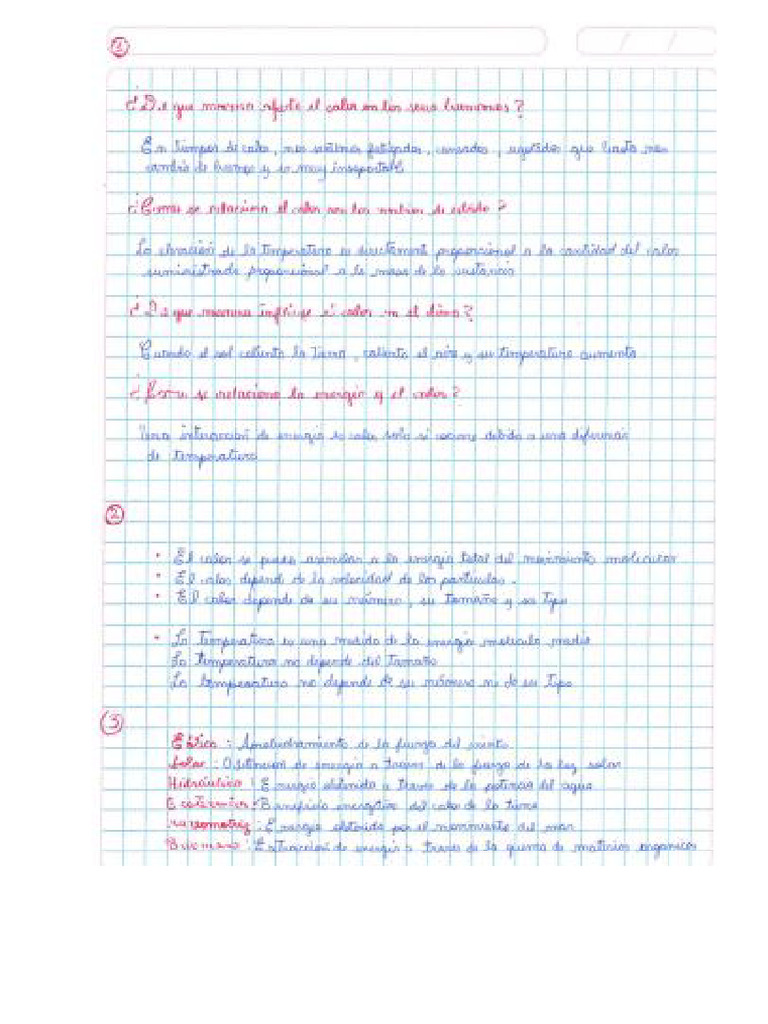 1
¿De que manera afecta el calor en los seres humanos?
En tiempos de calor, nos sentimos fatigados, cansados, agotados que hasta nos
cambia de humor y es muy insoportable
¿Como se relaciona el calor con los cambios de estado?
La elevación de la temperatura es directament proporcional a la cantidad del calor
suministrado proporcional a la masa de la sustancia
¿De que manera influye el calor en el clima?
Cuando el sol calienta la Tierra, calienta el aire y su temperatura aumenta
¿Como se relaciona la energia y el calor?
Una interacción de energia es calor solo si ocurre debido a una diferencia
de temperatura
2
• El calor se puede asemejar a la energia total del movimiento molecular
• El calor depende de la velocidad de las particulas.
• El calor depende de su número, su tamaño y su tipo
• La temperatura es una medida de la energia molecula media
La temperatura no depende del tamaño
La temperatura no depende de su número ni de su tipo
3
Eólica: Aprovechamiento de la fuerza del viento
Solar: Obtención de energia a traves de la fuerza de la luz solar
Hidráulica: Energia obtenida a traves de la potencia del agua
Geotermica: Beneficio energetico del calor de la tierra
: Energia obtenida por el movimiento del mar
Biomasa: Extracción de energia a traves de la quema de materias organicas